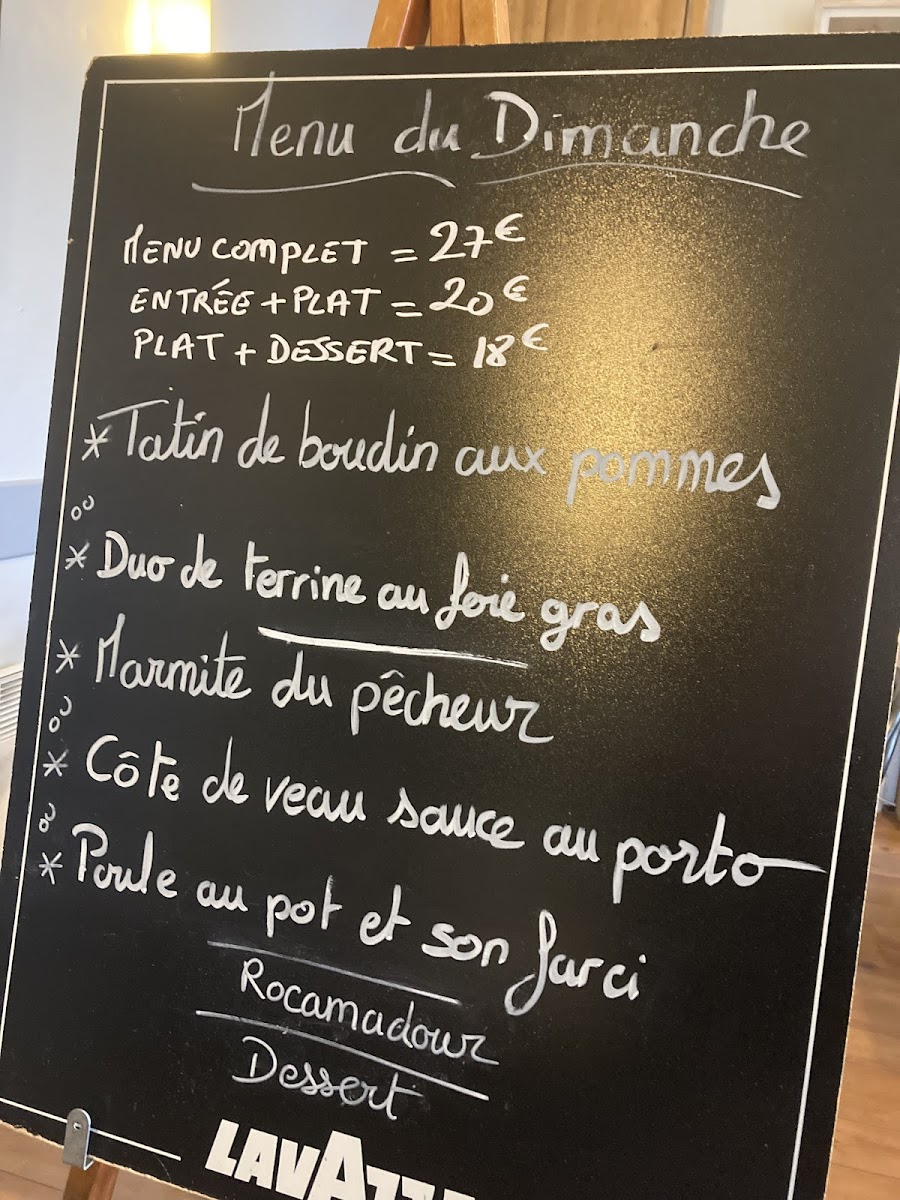 Menu du Dimanche
MENU COMPLET = 27€
ENTRÉE + PLAT = 20€
PLAT + DESSERT = 18€
* Tatin de boudin aux pommes
ou
* Duo de terrine au foie gras
* Marmite du pêcheur
ou
* Côte de veau sauce au porto
ou
* Poule au pot et son farci
Rocamadour
Dessert
LAVAZZA